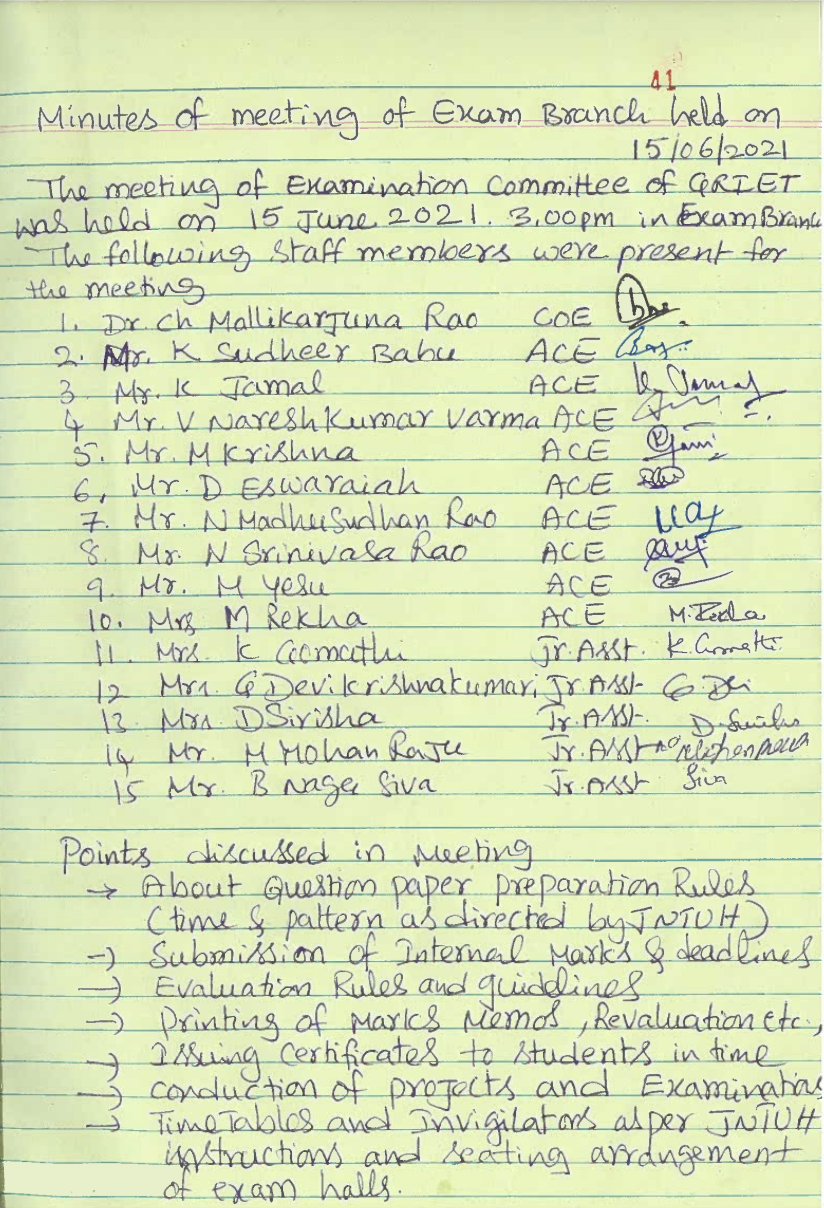 41
Minutes of meeting of Exam Branch held on
15/06/2021
The meeting of Examination Committee of GRIET
was held on 15 June 2021. 3.00pm in Exam Branch
The following staff members were present for
the meeting
1. Dr. Ch Mallikarjuna Rao COE
2. Mr. K Sudheer Babu ACE
3 Mr. K Jamal ACE K. Jamal
4 Mr. V Naresh Kumar Varma ACE
5. Mr. M Krishna ACE
6, Mr. D Eswaraiah ACE
7. Mr. N Madhusudhan Rao ACE
8. Mr. N Srinivasa Rao ACE
9. Mr. M Yesu ACE
10. Mrs M Rekha ACE M. Rekha
11. Mrs. K Gomathi Jr. Asst. K. Gomathi
12 Mrs. G Devikrishnakumari, Jr Asst
13 Mrs D Sirisha Jr. Asst.
14 Mr. M Mohan Raju Jr. Asst
15 Mr. B Naga Siva Jr. Asst Siva
Points discussed in Meeting
→ About Question paper preparation Rules
(time & pattern as directed by JNTUH)
→ Submission of Internal Marks & deadlines
→ Evaluation Rules and guidelines
→ Printing of Marks Memos, Revaluation etc.,
→ Issuing Certificates to students in time
→ Conduction of projects and Examinations
→ Time Tables and Invigilators as per JNTUH
instructions and seating arrangement
of exam halls.